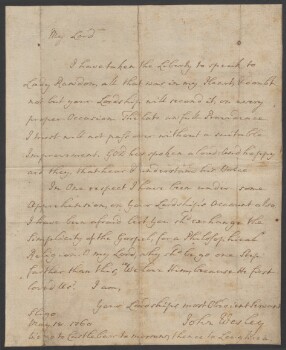 My Lord
I have taken the Liberty to speak to
Lady Rawdon, all that was in my Heart, & doubt
not but your Lordship will second it, on every
proper Occasion. The late awful Providence
I trust will not pass over without a suitable
Improvement. God has spoken aloud, and happy
are they that hear & understand his Voice
In One respect I have been under some
Apprehension, on your Lordship's Account also
I have been afraid, lest you shd exchange the
Simplicity of the Gospel, for a Philosophical
Religion. O my Lord, why shd we go one Step
farther than this, We love Him, because He first
loved Us? I am,
Your Lordship's most Obedient Servant
John Wesley
Sligo
May 1760
to Castlebar to morrow, thence to